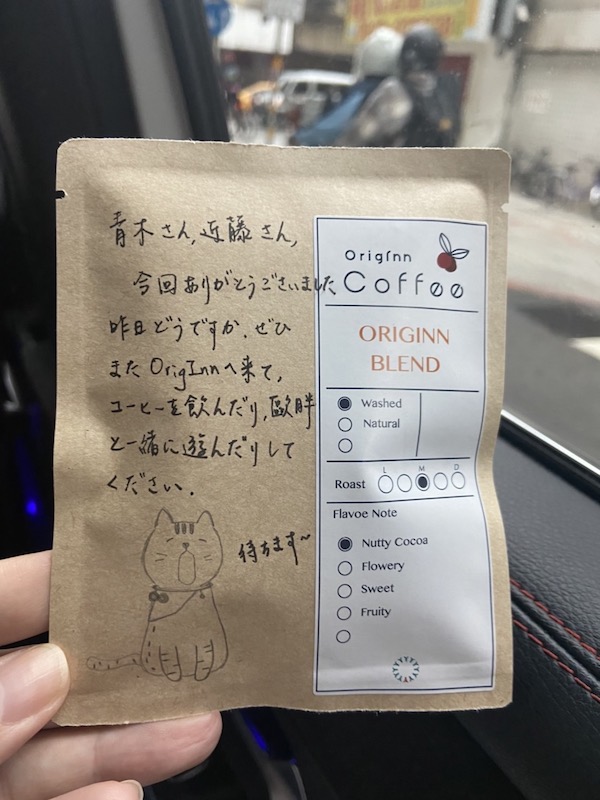 青木さん、近藤さん,
今回ありがとうございました
昨日どうですか. ぜひ
また OrigInnへ来て,
コーヒーを飲んだり, 歐胖
と一緒に遊んだりして
ください.
待ちます〜
OrigInn
Coffee
ORIGINN
BLEND
Washed
Natural
Roast L M D
Flavoe Note
Nutty Cocoa
Flowery
Sweet
Fruity